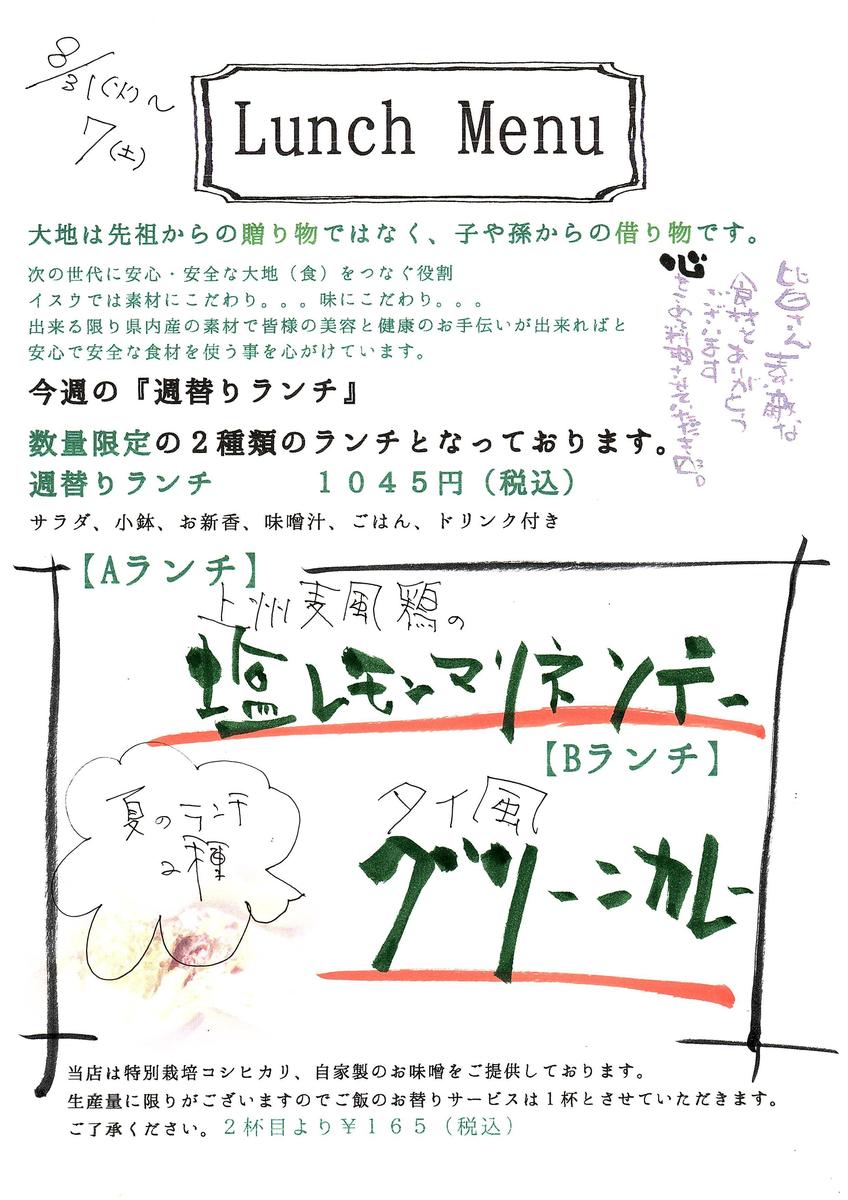 8/31(火)~
7(土)
Lunch Menu
大地は先祖からの贈り物ではなく、子や孫からの借り物です。
次の世代に安心・安全な大地（食）をつなぐ役割
イスウでは素材にこだわり。。。味にこだわり。。。
出来る限り県内産の素材で皆様の美容と健康のお手伝いが出来ればと
安心で安全な食材を使う事を心がけています。
皆さん素敵な
食材をありがとう
ございます
心
をこめて料理させていただきます。
今週の『週替りランチ』
数量限定の２種類のランチとなっております。
週替りランチ　　　１０４５円（税込）
サラダ、小鉢、お新香、味噌汁、ごはん、ドリンク付き
【Aランチ】
上州麦風鶏の
塩レモンマリネソテー
【Bランチ】
タイ風
グリーンカレー
夏のランチ
2種
当店は特別栽培コシヒカリ、自家製のお味噌をご提供しております。
生産量に限りがございますのでご飯のお替りサービスは１杯とさせていただきます。
ご了承ください。２杯目より￥１６５（税込）